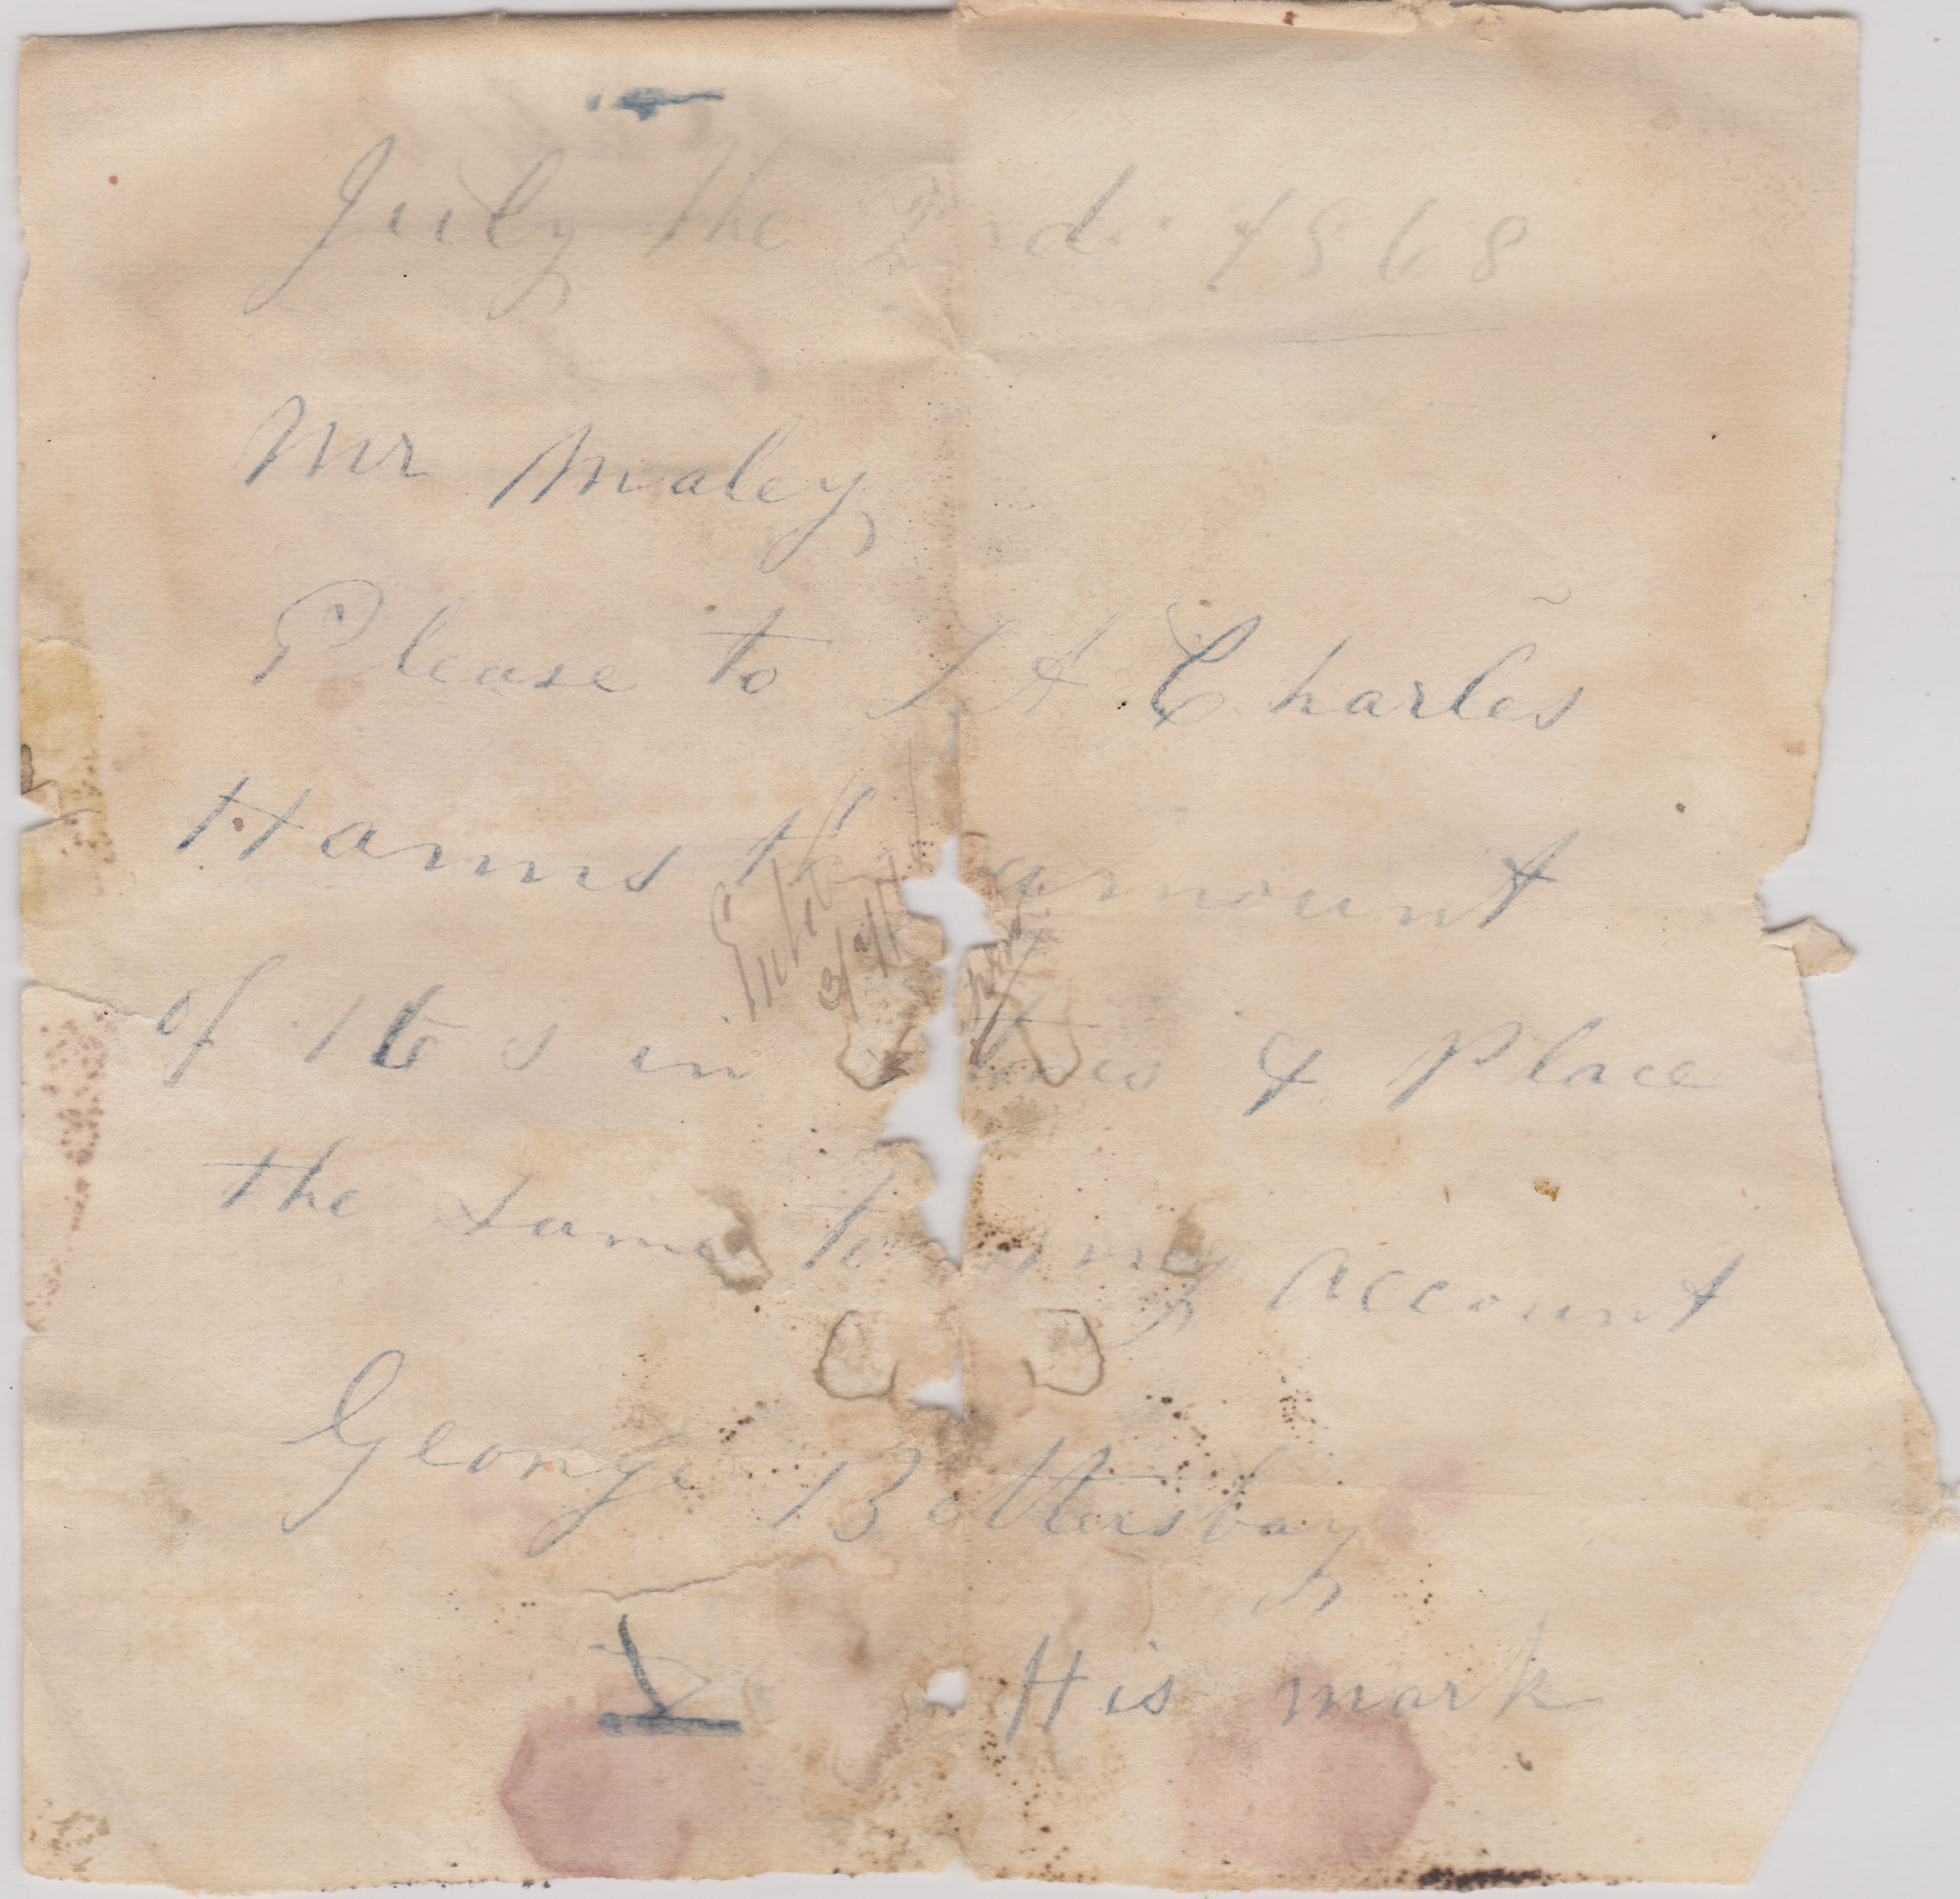 July the 2nd 1868
Mr Maley
Please to Charles
Harms the amount
of 16 s in & Place
the same to my account
George Battersbay
His mark